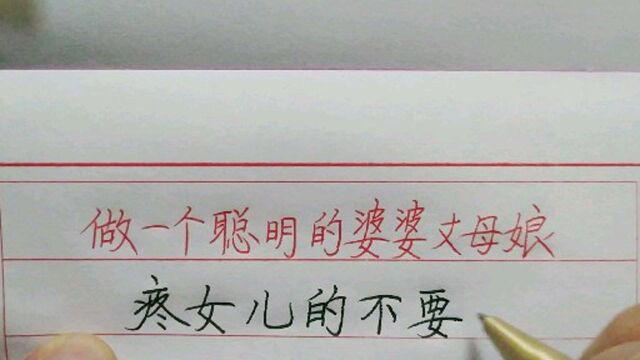 做一个聪明的婆婆丈母娘
疼女儿的不要